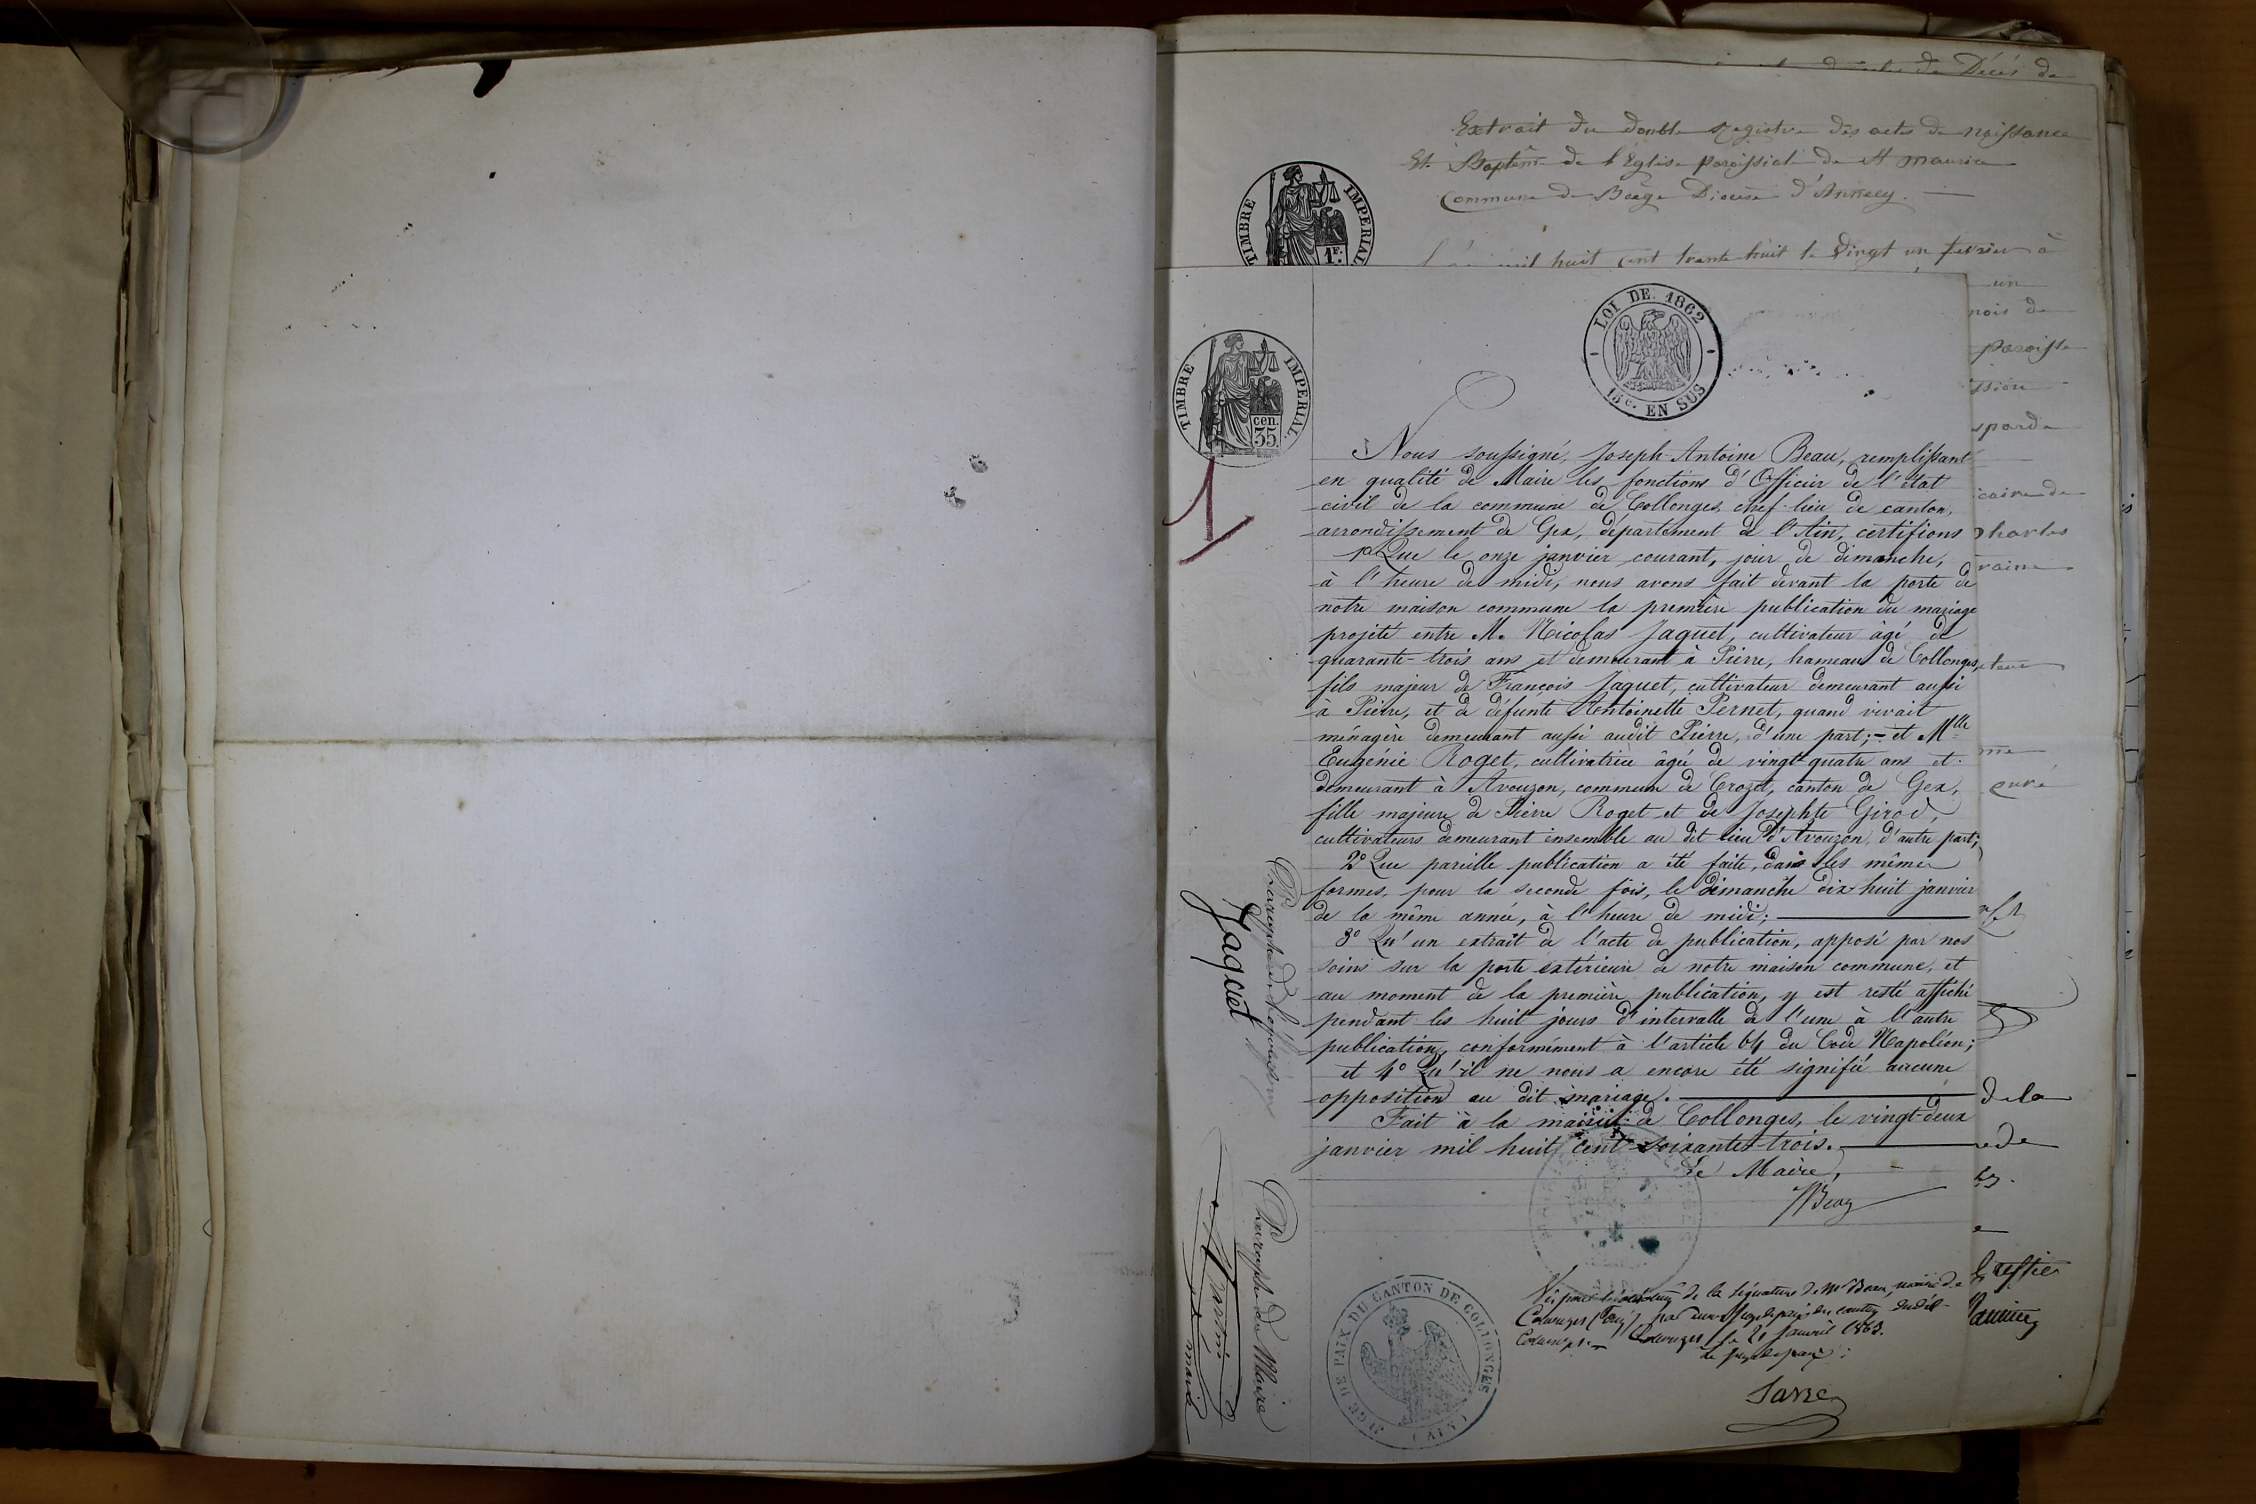 Décès de
Extrait du double Registre des actes de naissance
Et Baptême de l'Eglise paroissial de St maurice
Commune de Boëge Diocèse d'Annecy.
mil huit cent trente huit le vingt un fevrier à
TIMBRE IMPERIAL
1F.
un
mois de
paroisse
caire de
Charles
raine
curé
de la
Greffier
LOI DE 1862
15c. EN SUS
TIMBRE IMPERIAL
cen. 35.
1
Nous soussigné, Joseph-Antoine Beau, remplissant
en qualité de Maire les fonctions d'Officier de l'état
civil de la commune de Collonges, chef-lieu de canton,
arrondissement de Gex, département de l'Ain, certifions
1º Que le onze janvier courant, jour de dimanche,
à l'heure de midi, nous avons fait devant la porte de
notre maison commune la première publication du mariage
projeté entre M. Nicolas Jaquet, cultivateur âgé de
quarante-trois ans et demeurant à Pierre, hameau de Collonges,
fils majeur de François Jaquet, cultivateur demeurant aussi
à Pierre, et de défunte Antoinette Pernet, quand vivait
ménagère demeurant aussi audit Pierre, d'une part; - et Mlle
Eugénie Roget, cultivatrice âgée de vingt-quatre ans et
demeurant à Avouzon, commune de Crozet, canton de Gex,
fille majeure de Pierre Roget et de Josephte Girod,
cultivateurs demeurant ensemble au dit lieu d'Avouzon, d'autre part;
2º Que pareille publication a été faite, dans les mêmes
formes, pour la seconde fois, le dimanche dix-huit janvier
de la même année, à l'heure de midi;
3º Qu'un extrait de l'acte de publication, apposé par nos
soins sur la porte extérieure de notre maison commune, et
au moment de la première publication, y est resté affiché
pendant les huit jours d'intervalle de l'une à l'autre
publication, conformément à l'article 64 du Code Napoléon;
et 4º Qu'il ne nous a encore été signifié aucune
opposition au dit mariage.
Fait à la mairie de Collonges, le vingt-deux
janvier mil huit cent soixante-trois.
Le Maire,
Beau
Vu pour légalisation de la signature de Mr Beau, maire de
Collonges (Ain), par nous Juge de paix du canton dudit
Collonges. Collonges, le 21 janvier 1863.
le juge de paix:
JUGE DE PAIX DU CANTON DE COLLONGES
(AIN)
Paraphe de l'époux
Jaquet
Paraphe du Maire
Martin
maire